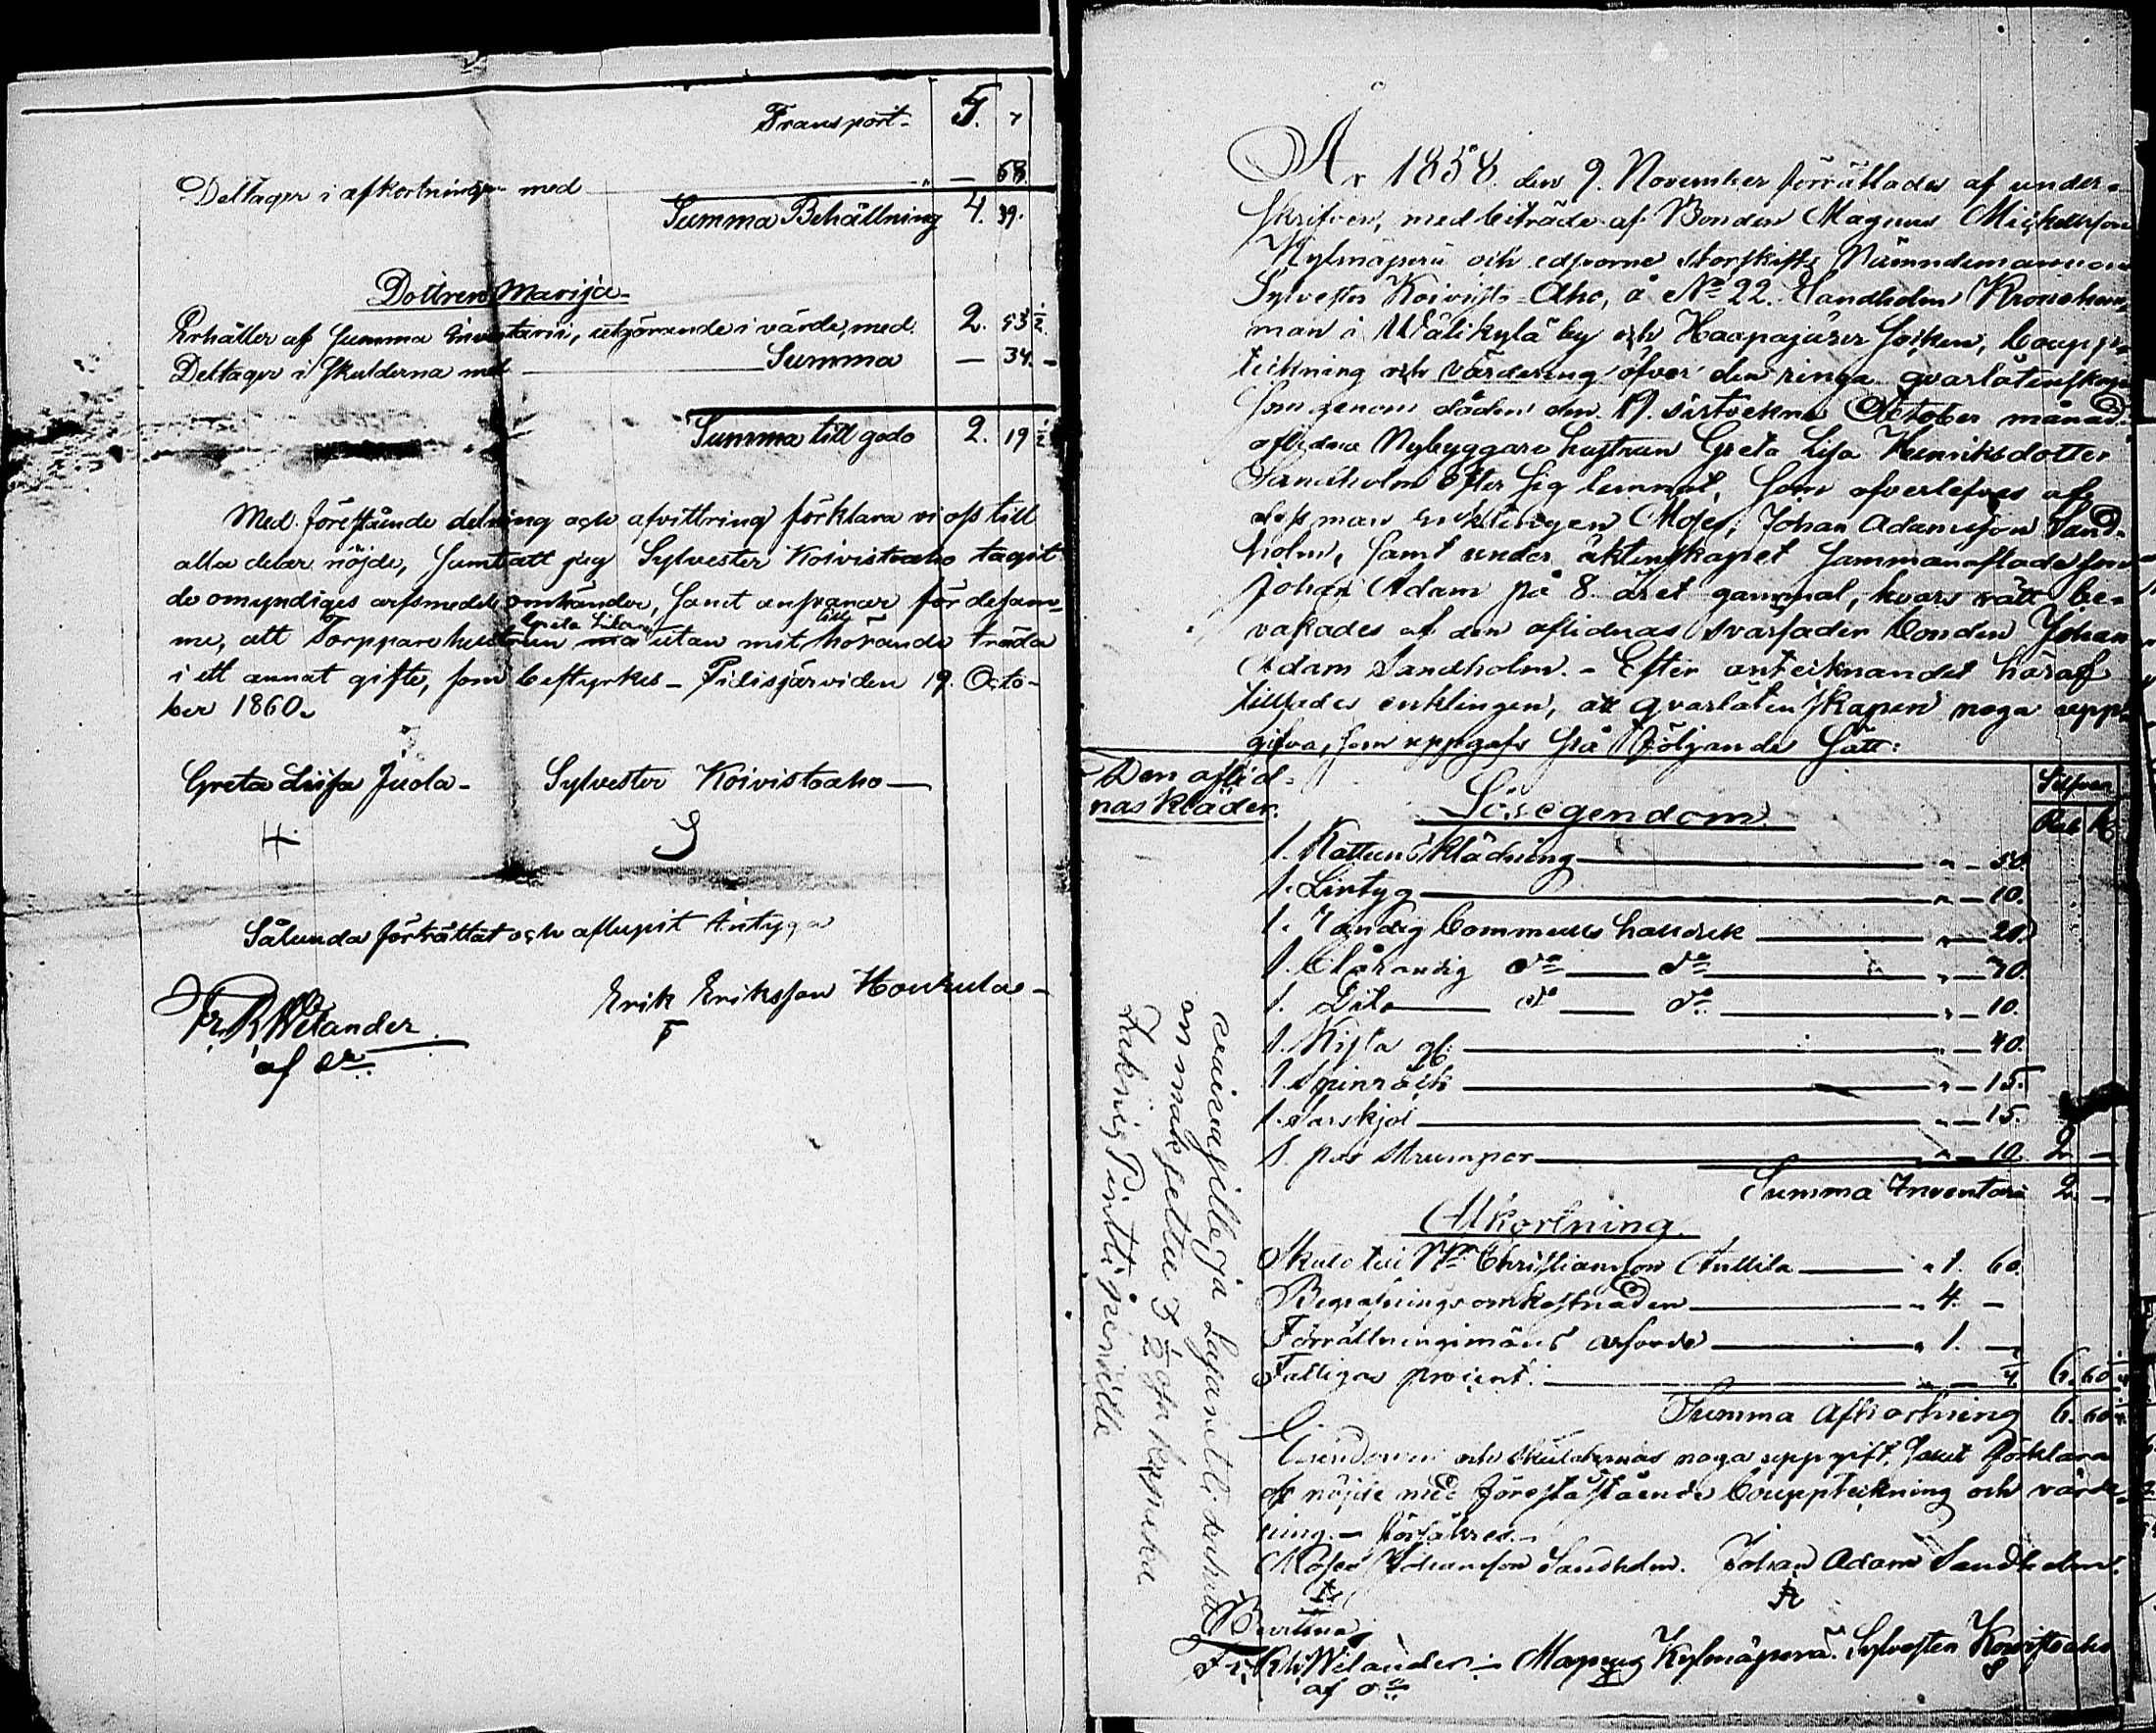 Transport 5. 7
Deltager i afkortningen med — 68
Summa Behållning 4. 39.
Dottren Marija
Erhåller af Summa Inventarii, utgörande i värde, med 2. 53 1/2
Deltager i skulderna med Summa — 34. –
Summa till godo 2. 19 1/2
Med föreståênde delning och afvittring förklara vi oss till
alla delar nöjde, samt att jag Sylvester Koivistoaho tagit
de omyndiges arfsmedel omhänder, samt ansvarar för desam-
me, att Torpparehustrun utan mit hörande träda
i ett annat gifte, som bestyrkes – Pidisjärvi den 19. Octo-
ber 1860.
Greta Liisa Juola – Sylvester Koivistoaho —
Sålunda förrättat och aflupit Intyga
Fr. R. Welander
Erik Eriksson Honkula –
År 1858. den 9. November förrättades af under-
skrifven, med biträde af Bonden Magnus Mickelsson
Kylmäperä och edsvorne storskifts Nämndemannen
Sylvester Koivisto-Aho, å No 22. Sandholm Kronohem-
man i Wälikylä by och Haapajärvi Socken, Boupp-
teckning och Värdering öfver den ringa qvarlåtenskap
som genom döden den 19. sistvekne October månad
aflidna Nybyggare hustrun Greta Lisa Henriksdotter
Sandholm efter sig lemnat, som öfverlefves af
dess man enklingen Moses Johan Adamsson Sand-
holm, samt under äktenskapet sammanaflade son
Johan Adam på 8. året gammal, hvars rätt be-
vakades af den aflidnas svärfader bonden Johan
Adam Sandholm. – Efter antecknandet häraf
tillsades enklingen, att qvarlåtenskapen noga upp-
gifva, som uppgafs på följande sätt:
Den aflid-
nas kläder.
Lösegendom
Silfver
Rub. K.
1. Kattuns klädning " – 50.
1. Lintyg " – 10.
1. randig Bommulls halsduk " – 20.
1. Blårandig do do " – 30.
1. Dito do do " – 10.
1. Kista gl: " – 40.
1. Spinrock " – 15.
1. Varskjol " – 15.
1. par strumpor " – 10. 2. –
Summa Inventarii 2. –
Afkortning.
Skuld till Christiansson Anttila " 1. 60.
Begrafnings omkostnaden " 4. –
Förrättningsmäns arfvode " 1. –
Fattigas procent. " – 1/4 6. 60 1/4
Summa Afkortning 6. 60 1/4
Egendomen och skuldernas noga uppgift, samt förklara
oss nöjde med föreståstående Bouppteckning och värde-
ring. – försäkres. –
Moses Johansson Sandholm. Johan Adam Sandholm.
Bevittna
Fr. R. Welander – Magnus Kylmäperä. Sylvester Koivistoaho